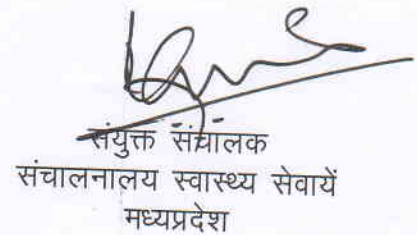 संयुक्त संचालक
संचालनालय स्वास्थ्य सेवायें
मध्यप्रदेश